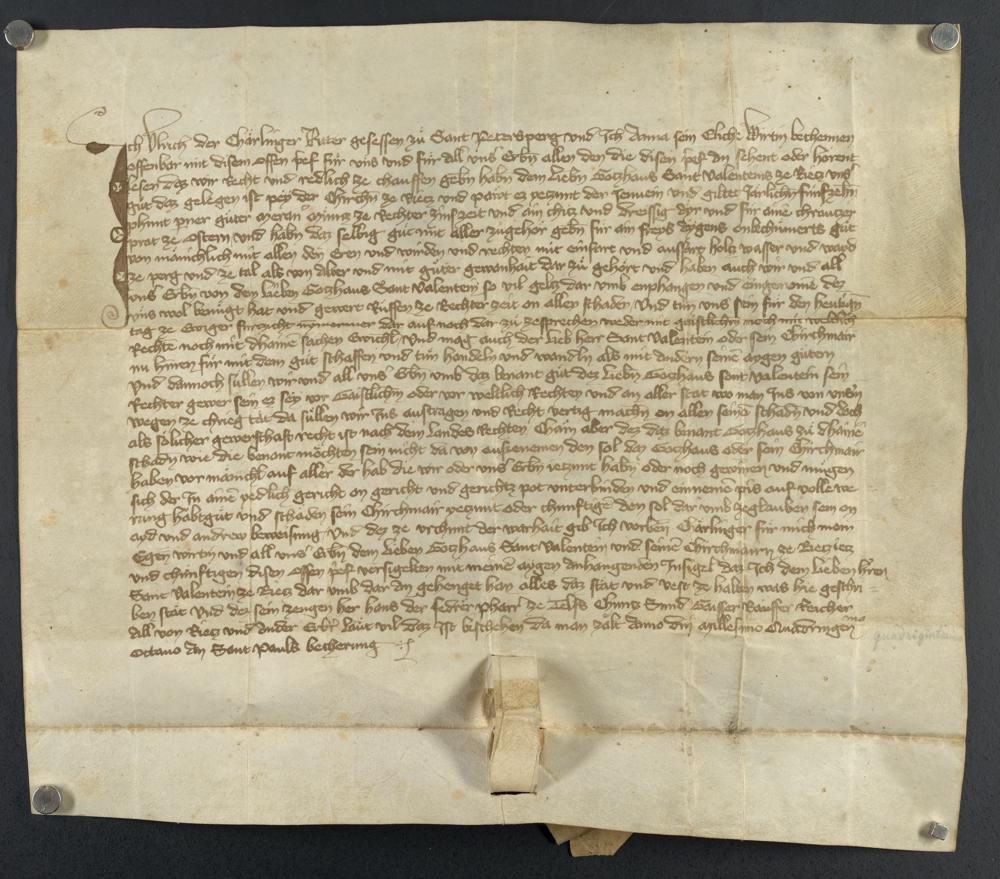 Ich Ulrich der Chärlinger Riter gesessen zů Sant Petersperg und Ich Anna sein Eliche Wirtin bechennen
offenbar mit disem offen prief für uns und für all uns Erbn allen den die disen prief an sehent oder hörent
lesen daz wir Recht und redlich ze chauffen gebn habn dem liebn Gotzhaus Sant Valenteins ze Riez uns
gůt daz gelegen ist pey der Chirchn ze Riez und pawt ez yezunt der Jenwein und giltet Jarlichn funfzehn
phunt perner guter meran munns ze Rechter zinszeit und ain chicz und dreissig ayr und für aine chrauczer
prot ze Ostern und habn daz selbig gůt mit aller zůgehör gebn für ain freys aygens unbechumerts gůt
von männichlich mit allen den Eren und wirden und rechten mit einfart und ausfart holz wasser und wayd
ze perg und ze tal als von alter und mit gůter gewonhait dar zů gehört und haben auch wir und all
uns Erbn von den lieben Gotzhaus Sant Valentein so vil geltz dar umb enphangen und eingenomen dez
uns wol benugt hat und gewert Russen ze Rechter zeit on allen schaden Und tun uns sein für den heutign
tag ze Ewiger furzicht nymermer dar auf noch dar zů zesprechen weder mit gaistlichn noch mit weltlich
Rechte noch mit dhaine sachen Ewichl. Und mag auch der lieb herr Sant Valentein oder sein Chirchmair
nu hinen für mit dem gůt schaffen und tun handeln und wandln als mit andern seine aygen gůtern
Und dannoch sullen wir und all uns Erbn umb daz benant gůt dez liebn Gotzhaus sant valentein sein
Rechter gewer sein ez sey vor Gaistlichn oder vor weltlich Rechten und an aller stat wo man Ins von unsn
wegen ze chrieg tat da sullen wir Ins austragen und Recht vertig machn on allen seine schadn und doch
als sölicher gewerschaft recht ist nach dem landes Rechten Chäm aber dez daz benant Gotzhaus zu dhaine
schadn wie die benant möchten sein nicht da von auszenemen den sol daz Gotzhaus oder sein Chirchmair
haben vor mänichl auf aller der hab die wir oder uns Erbn yetzunt habn oder noch gewinen und mugen
sich der In aine yedlich gericht on gericht und gerichtz pot unterbinden und einnemen pis auf volle we
rung habtgůt und schaden sein Chirchmair yezunt oder chunftigen den sol dar umb ze glauben sein on
ayd und andrew beweisung Und dez ze urchunt der warhait gib Ich vorben Chärlinger für mich mein
Egen wirtin und all uns Erbn dem lieben Gotzhaus Sant Valentein und seine Chirchmairn ze Riez iecz
und chunftigen disen offen prief versigelten mit meinem aygen anhangenden Insigel daz Ich dem lieben hren
Sant Valentein ze Riez dar umb dar an gehenget han alles daz stät und vest ze halten was hie geschri
ben stät Und dez sein zeugen her hans der pharr ze Telfs Chuncz Reicher
All von Riez und ander Erbr läut vil daz Ist beschehen da man zalt Anno dni Millesimo Quadringenmo
quadrigintesimo
Octavo An Sant Pauls becherung